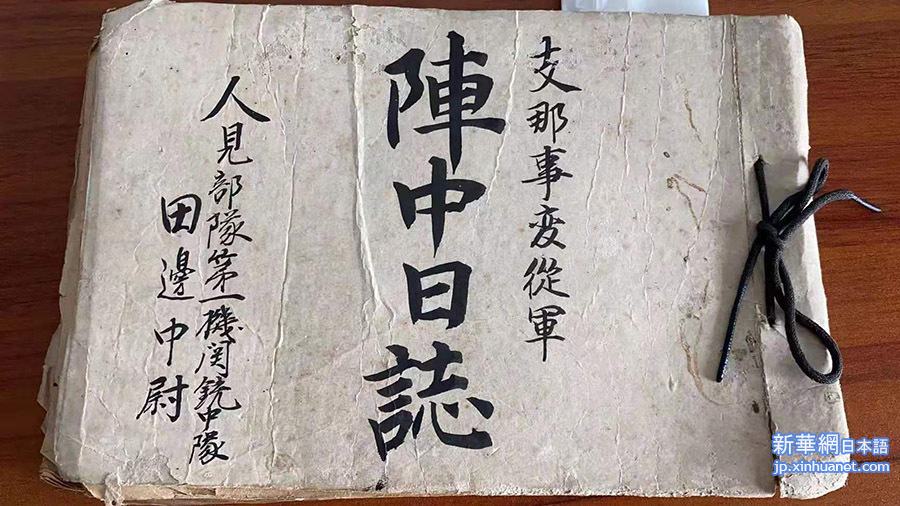 支那事変從軍
陣中日誌
人見部隊第一機関銃中隊
田邊中尉
新華網日本語
jp.xinhuanet.com